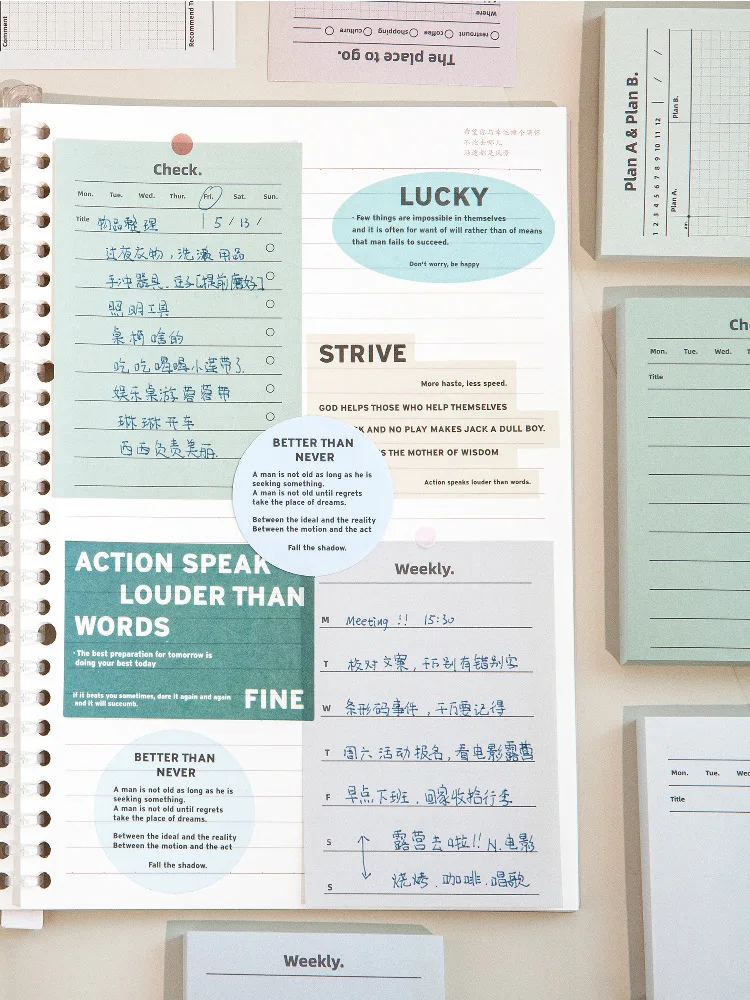 Comment
Recommend To
Where
restrount coffee shopping culture
The place to go.
Plan A & Plan B.
1 2 3 4 5 6 7 8 9 10 11 12 / /
Plan A.
Plan B.
Check.
Mon. Tue. Wed. Thur. Fri. Sat. Sun.
Title 物品整理 | 5 / 13 /
过夜衣物，洗漱用品
手冲器具.豆子[提前磨好]
照明工具
桌椅啥的
吃吃喝喝小莲带了
娱乐桌游
琳琳开车
西西负责美丽.
不论去哪儿
沿途都是风景
LUCKY
· Few things are impossible in themselves
and it is often for want of will rather than of means
that man fails to succeed.
Don't worry, be happy
STRIVE
More haste, less speed.
GOD HELPS THOSE WHO HELP THEMSELVES
K AND NO PLAY MAKES JACK A DULL BOY.
S THE MOTHER OF WISDOM
Action speaks louder than words.
BETTER THAN
NEVER
A man is not old as long as he is
seeking something.
A man is not old until regrets
take the place of dreams.
Between the ideal and the reality
Between the motion and the act
Fall the shadow.
ACTION SPEAK
LOUDER THAN
WORDS
· The best preparation for tomorrow is
doing your best today
If it beats you sometimes, dare it again and again
and it will succumb.
FINE
BETTER THAN
NEVER
A man is not old as long as he is
seeking something.
A man is not old until regrets
take the place of dreams.
Between the ideal and the reality
Between the motion and the act
Fall the shadow.
Weekly.
M Meeting !! 15:30
T 核对文案，千万别有错别字
W 条形码事件，千万要记得
T 周六活动报名，看电影露营
F 早点下班，回家收拾行李
S 露营去啦!! N.电影
S 烧烤.咖啡.唱歌
Mon. Tue. Wed.
Title
Mon. Tue.
Title
Weekly.